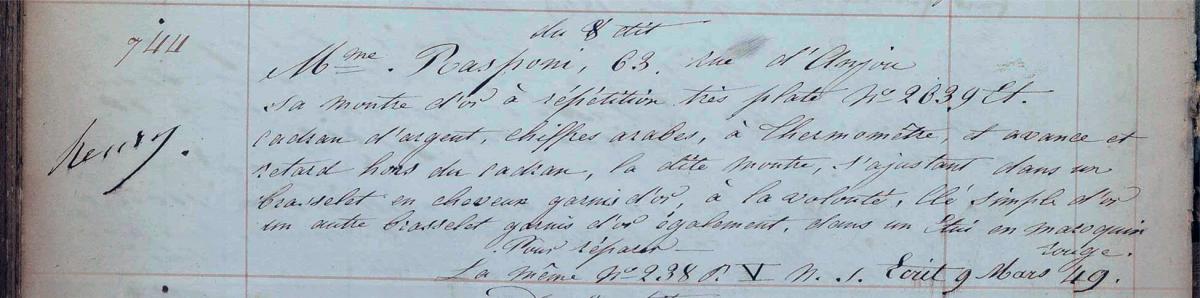 du 8 dit
744
Mme. Rasponi, 63. rue d'Anjou
Sa montre d'or à répétition très plate No 2639 Et.
cadran d'argent, chiffres arabes, à thermomètre, et avance et
henry.
retard hors du cadran, la dite montre, s'ajustant dans un
brasselet en cheveux garnis d'or, à la volonté. Clé simple d'or
un autre brasselet garnis d'or également, dans un Etui en maroquin
rouge.
Pour réparer
La même No 238 P. V N. 1. Ecrit 9 Mars 49.